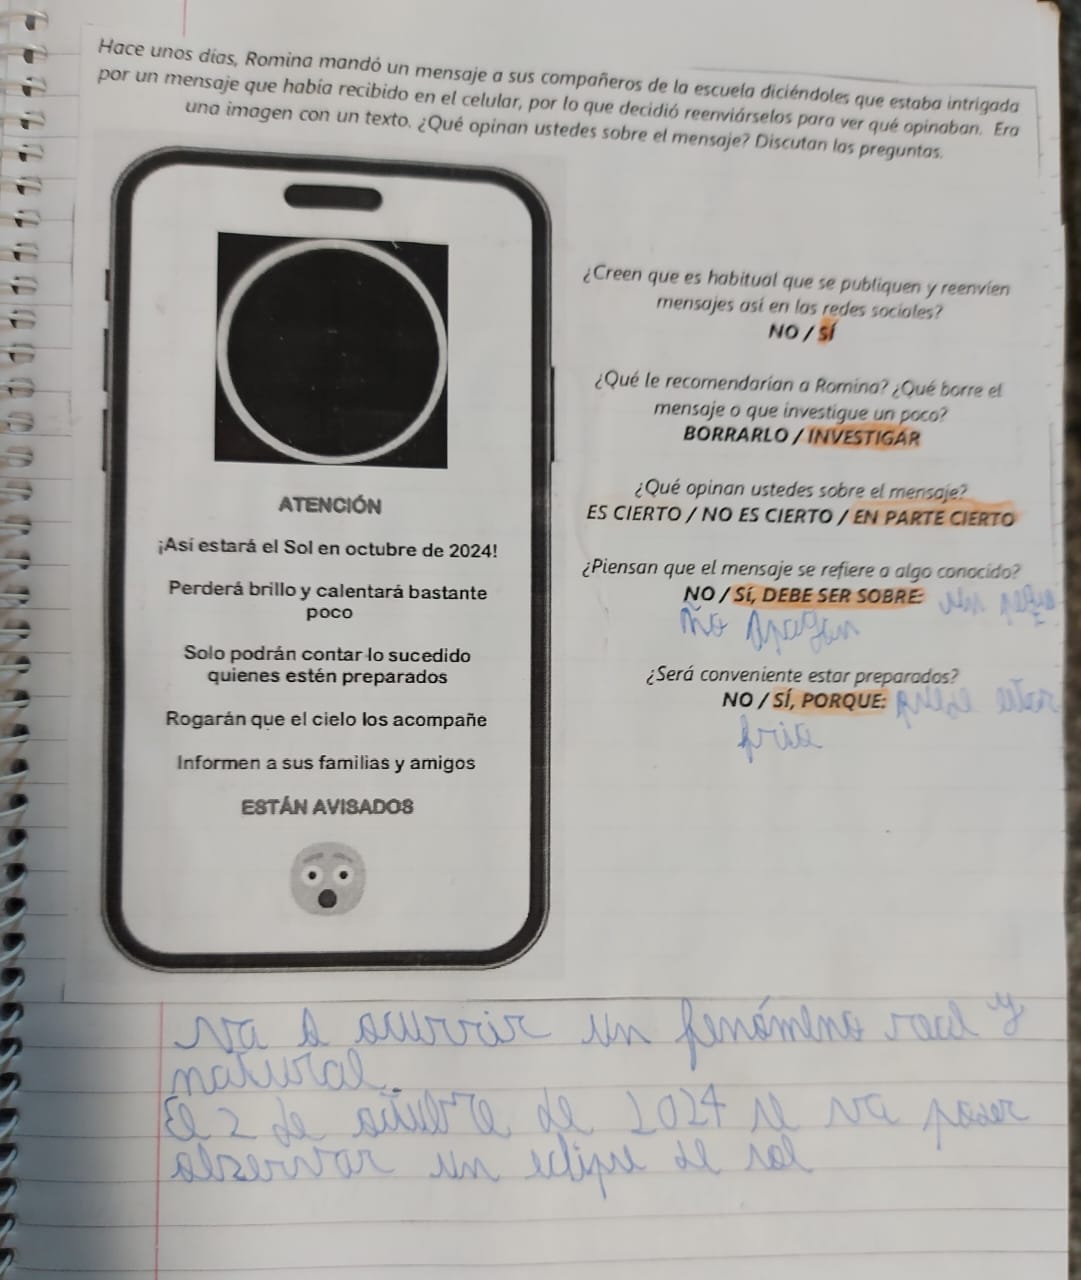 Hace unos días, Romina mandó un mensaje a sus compañeros de la escuela diciéndoles que estaba intrigada
por un mensaje que había recibido en el celular, por lo que decidió reenviárselos para ver qué opinaban. Era
una imagen con un texto. ¿Qué opinan ustedes sobre el mensaje? Discutan las preguntas.
ATENCIÓN
¡Así estará el Sol en octubre de 2024!
Perderá brillo y calentará bastante
poco
Solo podrán contar lo sucedido
quienes estén preparados
Rogarán que el cielo los acompañe
Informen a sus familias y amigos
ESTÁN AVISADOS
¿Creen que es habitual que se publiquen y reenvíen
mensajes así en las redes sociales?
NO / SÍ
¿Qué le recomendarían a Romina? ¿Qué borre el
mensaje o que investigue un poco?
BORRARLO / INVESTIGAR
¿Qué opinan ustedes sobre el mensaje?
ES CIERTO / NO ES CIERTO / EN PARTE CIERTO
¿Piensan que el mensaje se refiere a algo conocido?
NO / SÍ, DEBE SER SOBRE: Un peque
ño apagon
¿Será conveniente estar preparados?
NO / SÍ, PORQUE: puede estar
fria
va a ocurrir un fenómeno real y
natural.
El 2 de octubre de 2024 se va poder
observar un eclipse de sol